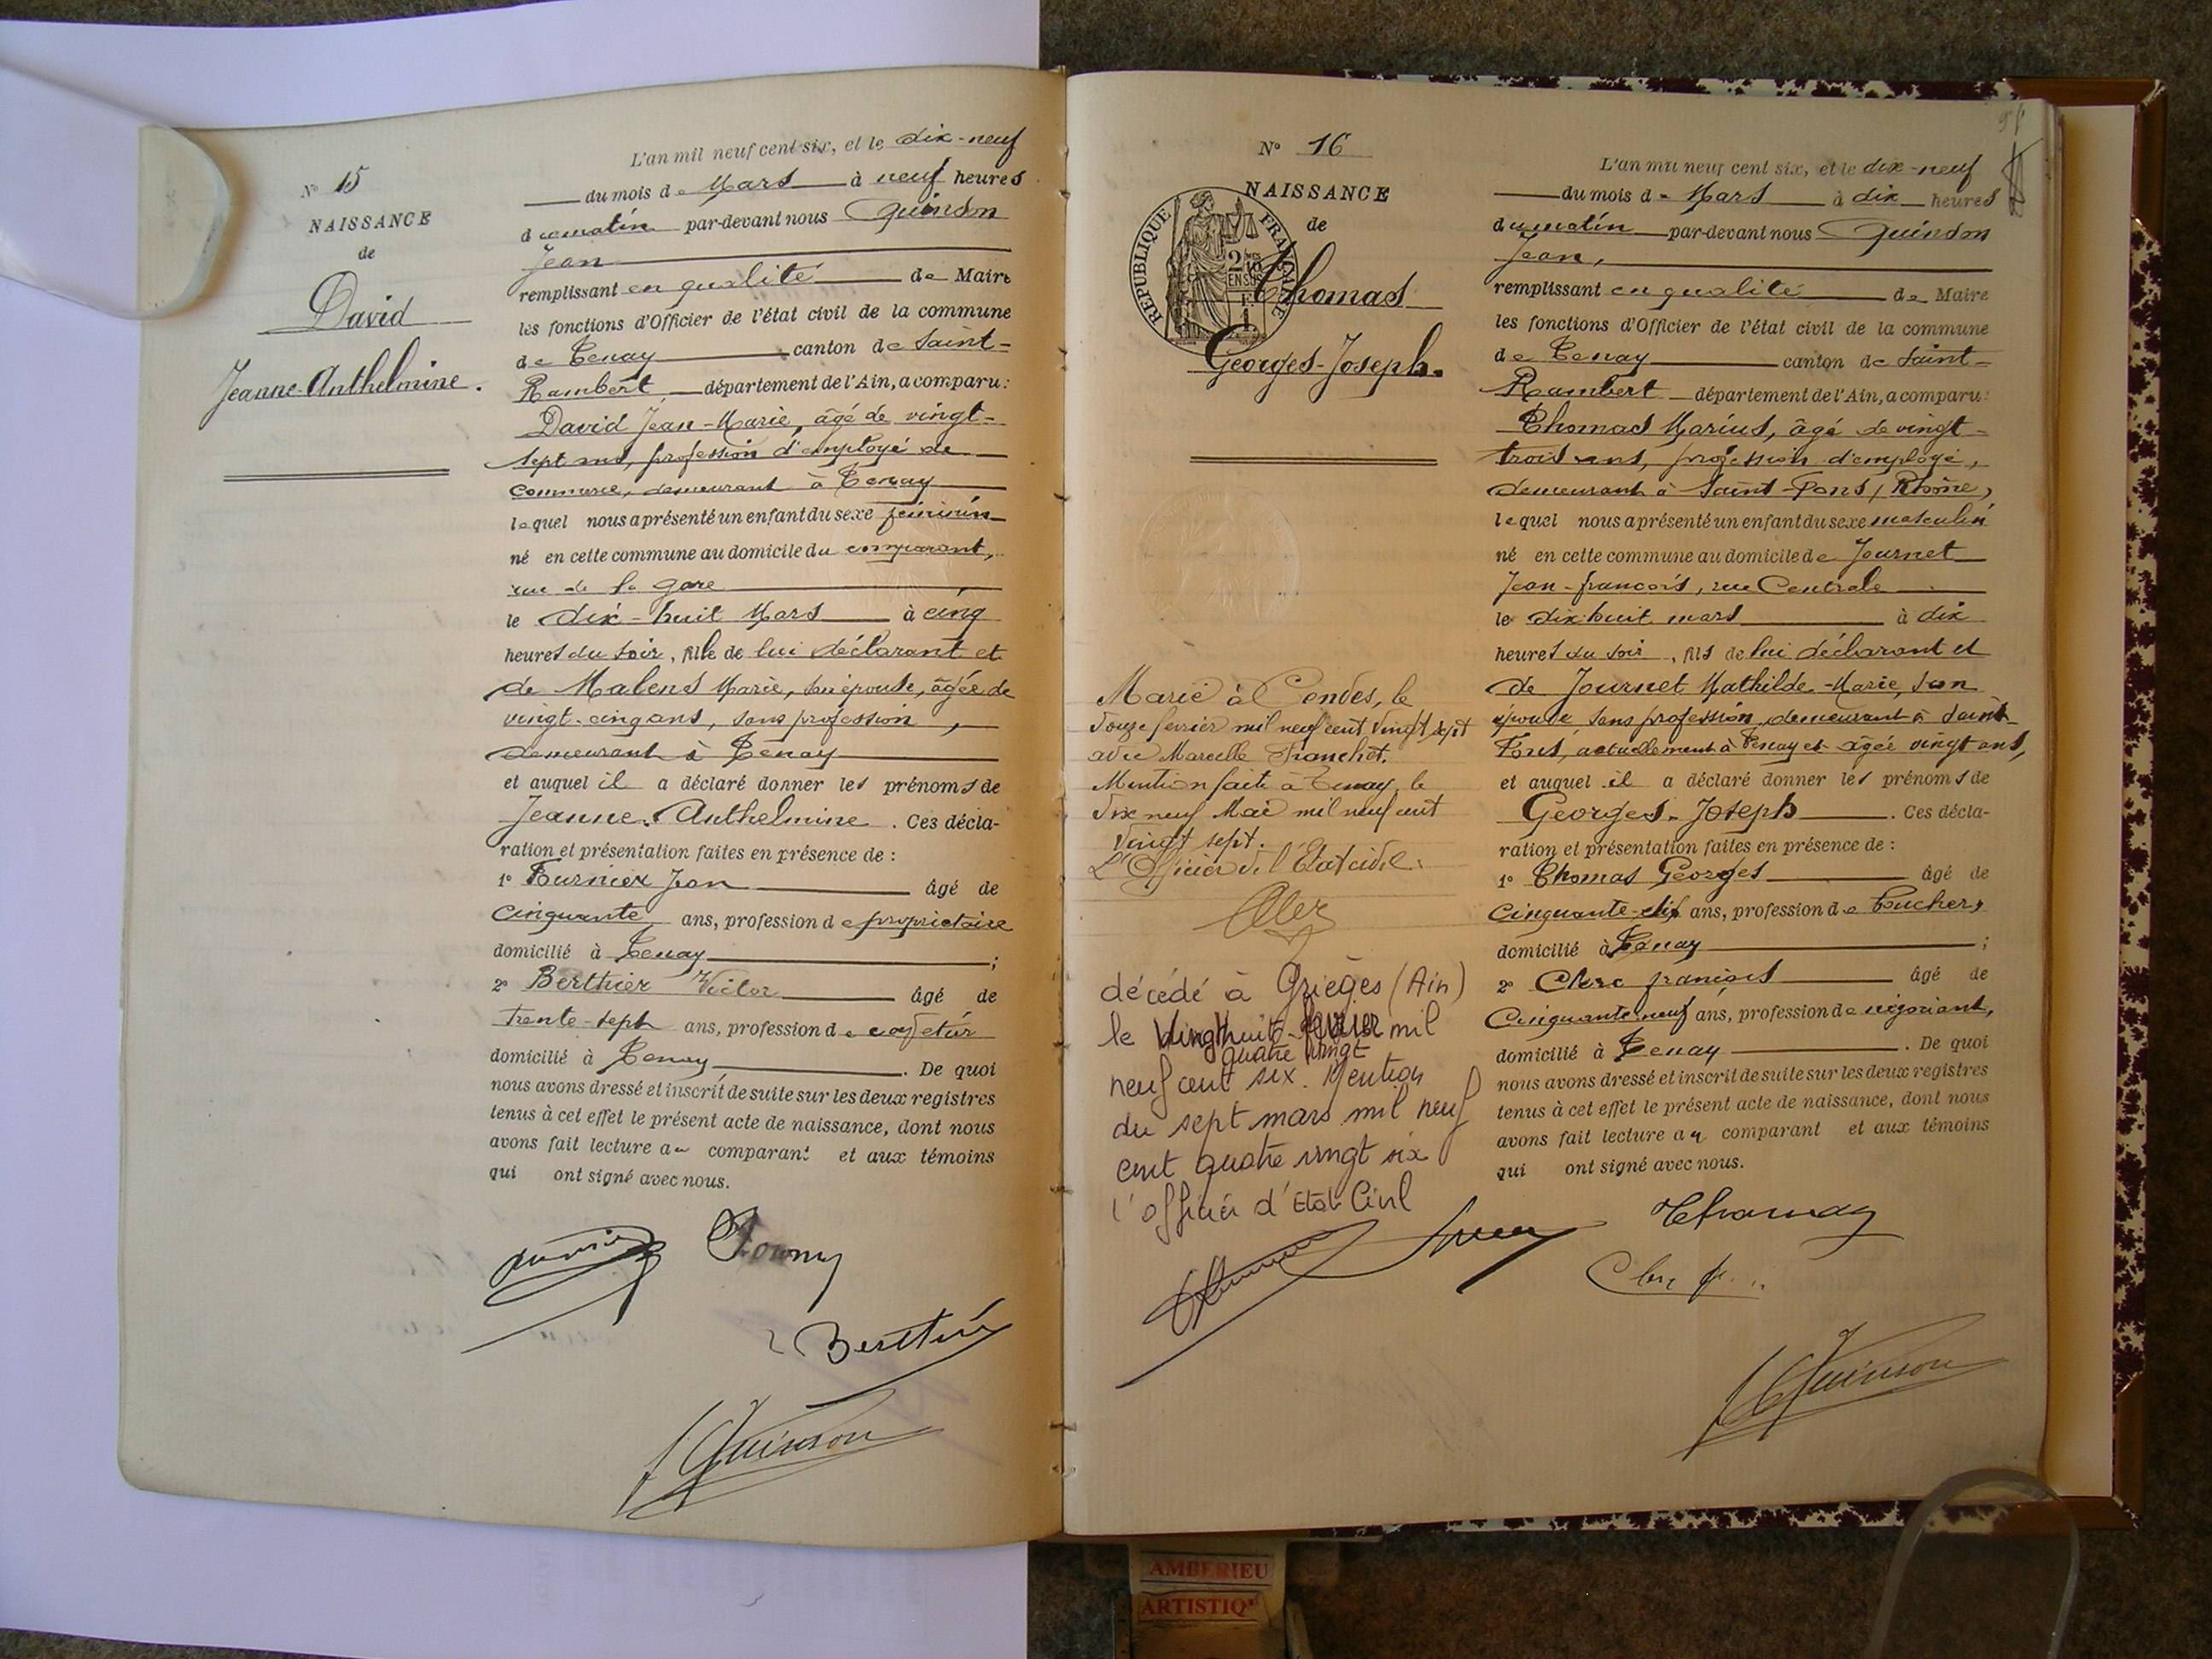 N° 15
NAISSANCE
de
David
Jeanne-Anthelmine.
L'an mil neuf cent six, et le dix-neuf
du mois de Mars à neuf heures
du matin par-devant nous Quinson
Jean
remplissant en qualité de Maire
les fonctions d'Officier de l'état civil de la commune
de Tenay canton de Saint-
Rambert département de l'Ain, a comparu:
David Jean-Marie, âgé de vingt-
sept ans, profession d'employé de
commerce, demeurant à Tenay
lequel nous a présenté un enfant du sexe féminin
né en cette commune au domicile du comparant,
rue de la gare
le dix-huit Mars à cinq
heures du soir, fille de lui déclarant et
de Malens Marie, son épouse, âgée de
vingt-cinq ans, sans profession,
demeurant à Tenay
et auquel il a déclaré donner les prénoms de
Jeanne-Anthelmine. Ces décla-
ration et présentation faites en présence de :
1° Fournier Jean âgé de
cinquante ans, profession de propriétaire
domicilié à Tenay ;
2° Berthier Victor âgé de
trente-sept ans, profession de
domicilié à Tenay. De quoi
nous avons dressé et inscrit de suite sur les deux registres
tenus à cet effet le présent acte de naissance, dont nous
avons fait lecture au comparant et aux témoins
qui ont signé avec nous.
Berthier
J Quinson
N° 16
NAISSANCE
de
REPUBLIQUE FRANÇAISE
Thomas
Georges-Joseph.
Marié à Cendes, le
douze fevrier mil neuf cent vingt sept
avec Marcelle Franchet.
Mention faite à Tenay, le
dix neuf Mai mil neuf cent
vingt sept.
L'Officier de l'Etat civil:
décédé à Grièges (Ain)
le vingt huit fevrier mil
quatre vingt
neuf cent six. Mention
du sept mars mil neuf
cent quatre vingt six
l'officier d'Etat Civil
L'an mil neuf cent six, et le dix-neuf
du mois de Mars à dix heures
du matin par-devant nous Quinson
Jean,
remplissant en qualité de Maire
les fonctions d'Officier de l'état civil de la commune
de Tenay canton de Saint-
Rambert département de l'Ain, a comparu:
Thomas Marius, âgé de vingt-
trois ans, profession d'employé,
demeurant à Saint-Fons, (Rhône,)
lequel nous a présenté un enfant du sexe masculin
né en cette commune au domicile de Journet
Jean-françois, rue Centrale
le dix-huit mars à dix
heures du soir, fils de lui déclarant et
de Journet Mathilde-Marie, son
épouse sans profession demeurant à Saint-
Fons, actuellement à Tenay et âgée vingt ans,
et auquel il a déclaré donner les prénoms de
Georges-Joseph. Ces décla-
ration et présentation faites en présence de :
1° Thomas Georges âgé de
cinquante-dix ans, profession de boucher,
domicilié à Tenay ;
2° Clerc françois âgé de
Cinquante neuf ans, profession de négociant,
domicilié à Tenay. De quoi
nous avons dressé et inscrit de suite sur les deux registres
tenus à cet effet le présent acte de naissance, dont nous
avons fait lecture au comparant et aux témoins
qui ont signé avec nous.
Thomas
J Quinson
AMBERIEU
ARTISTIQ